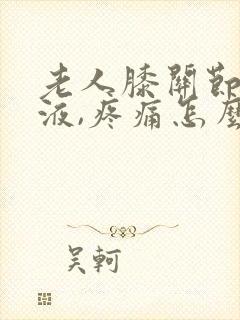 老人膝關節
液,疼痛怎麼
吴軻